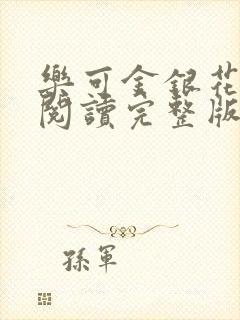 樂可金銀花
閱讀完整版
孫軍